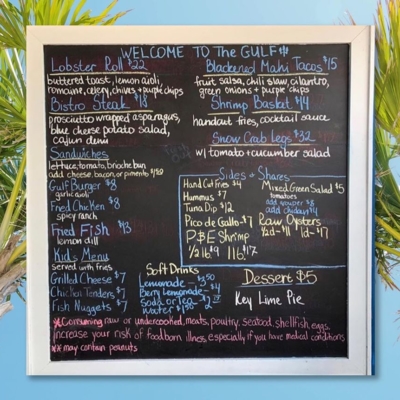 WELCOME TO The GULF!!!
Lobster Roll $22
buttered toast, lemon aioli,
romaine, celery, chives + purple chips
Bistro Steak $18
prosciutto wrapped asparagus,
blue cheese potato salad,
cajun demi
Sandwiches
lettuce, tomato, brioche bun
add cheese, bacon, or pimento
Gulf Burger $8
garlic aioli
Fried Chicken $8
spicy ranch
Fried Fish $13
lemon dill
Kid's Menu
served with fries
Grilled Cheese $7
Chicken Tenders $7
Fish Nuggets $7
Blackened Mahi Tacos $15
fruit salsa, chili slaw, cilantro,
green onions + purple chips
Shrimp Basket $14
handcut fries, cocktail sauce
Snow Crab Legs $32
w/ tomato + cucumber salad
Sides + Shares
Hand Cut Fries $4
Hummus $7
Tuna Dip $12
Pico de Gallo $7
P&E Shrimp
1/2 lb $9 1 lb $17
Mixed Green Salad $5
tomatoes
add $8
add $4
Raw Oysters
1/2d-$11 1d-$17
Soft Drinks
Lemonade - $3.50
Berry Lemonade - $4
Soda or Tea
Water $1.50
Dessert $5
Key Lime Pie
*Consuming raw or undercooked, meats, poultry, seafood, shellfish, eggs,
increase your risk of foodborn illness, especially if you have medical conditions
** may contain peanuts